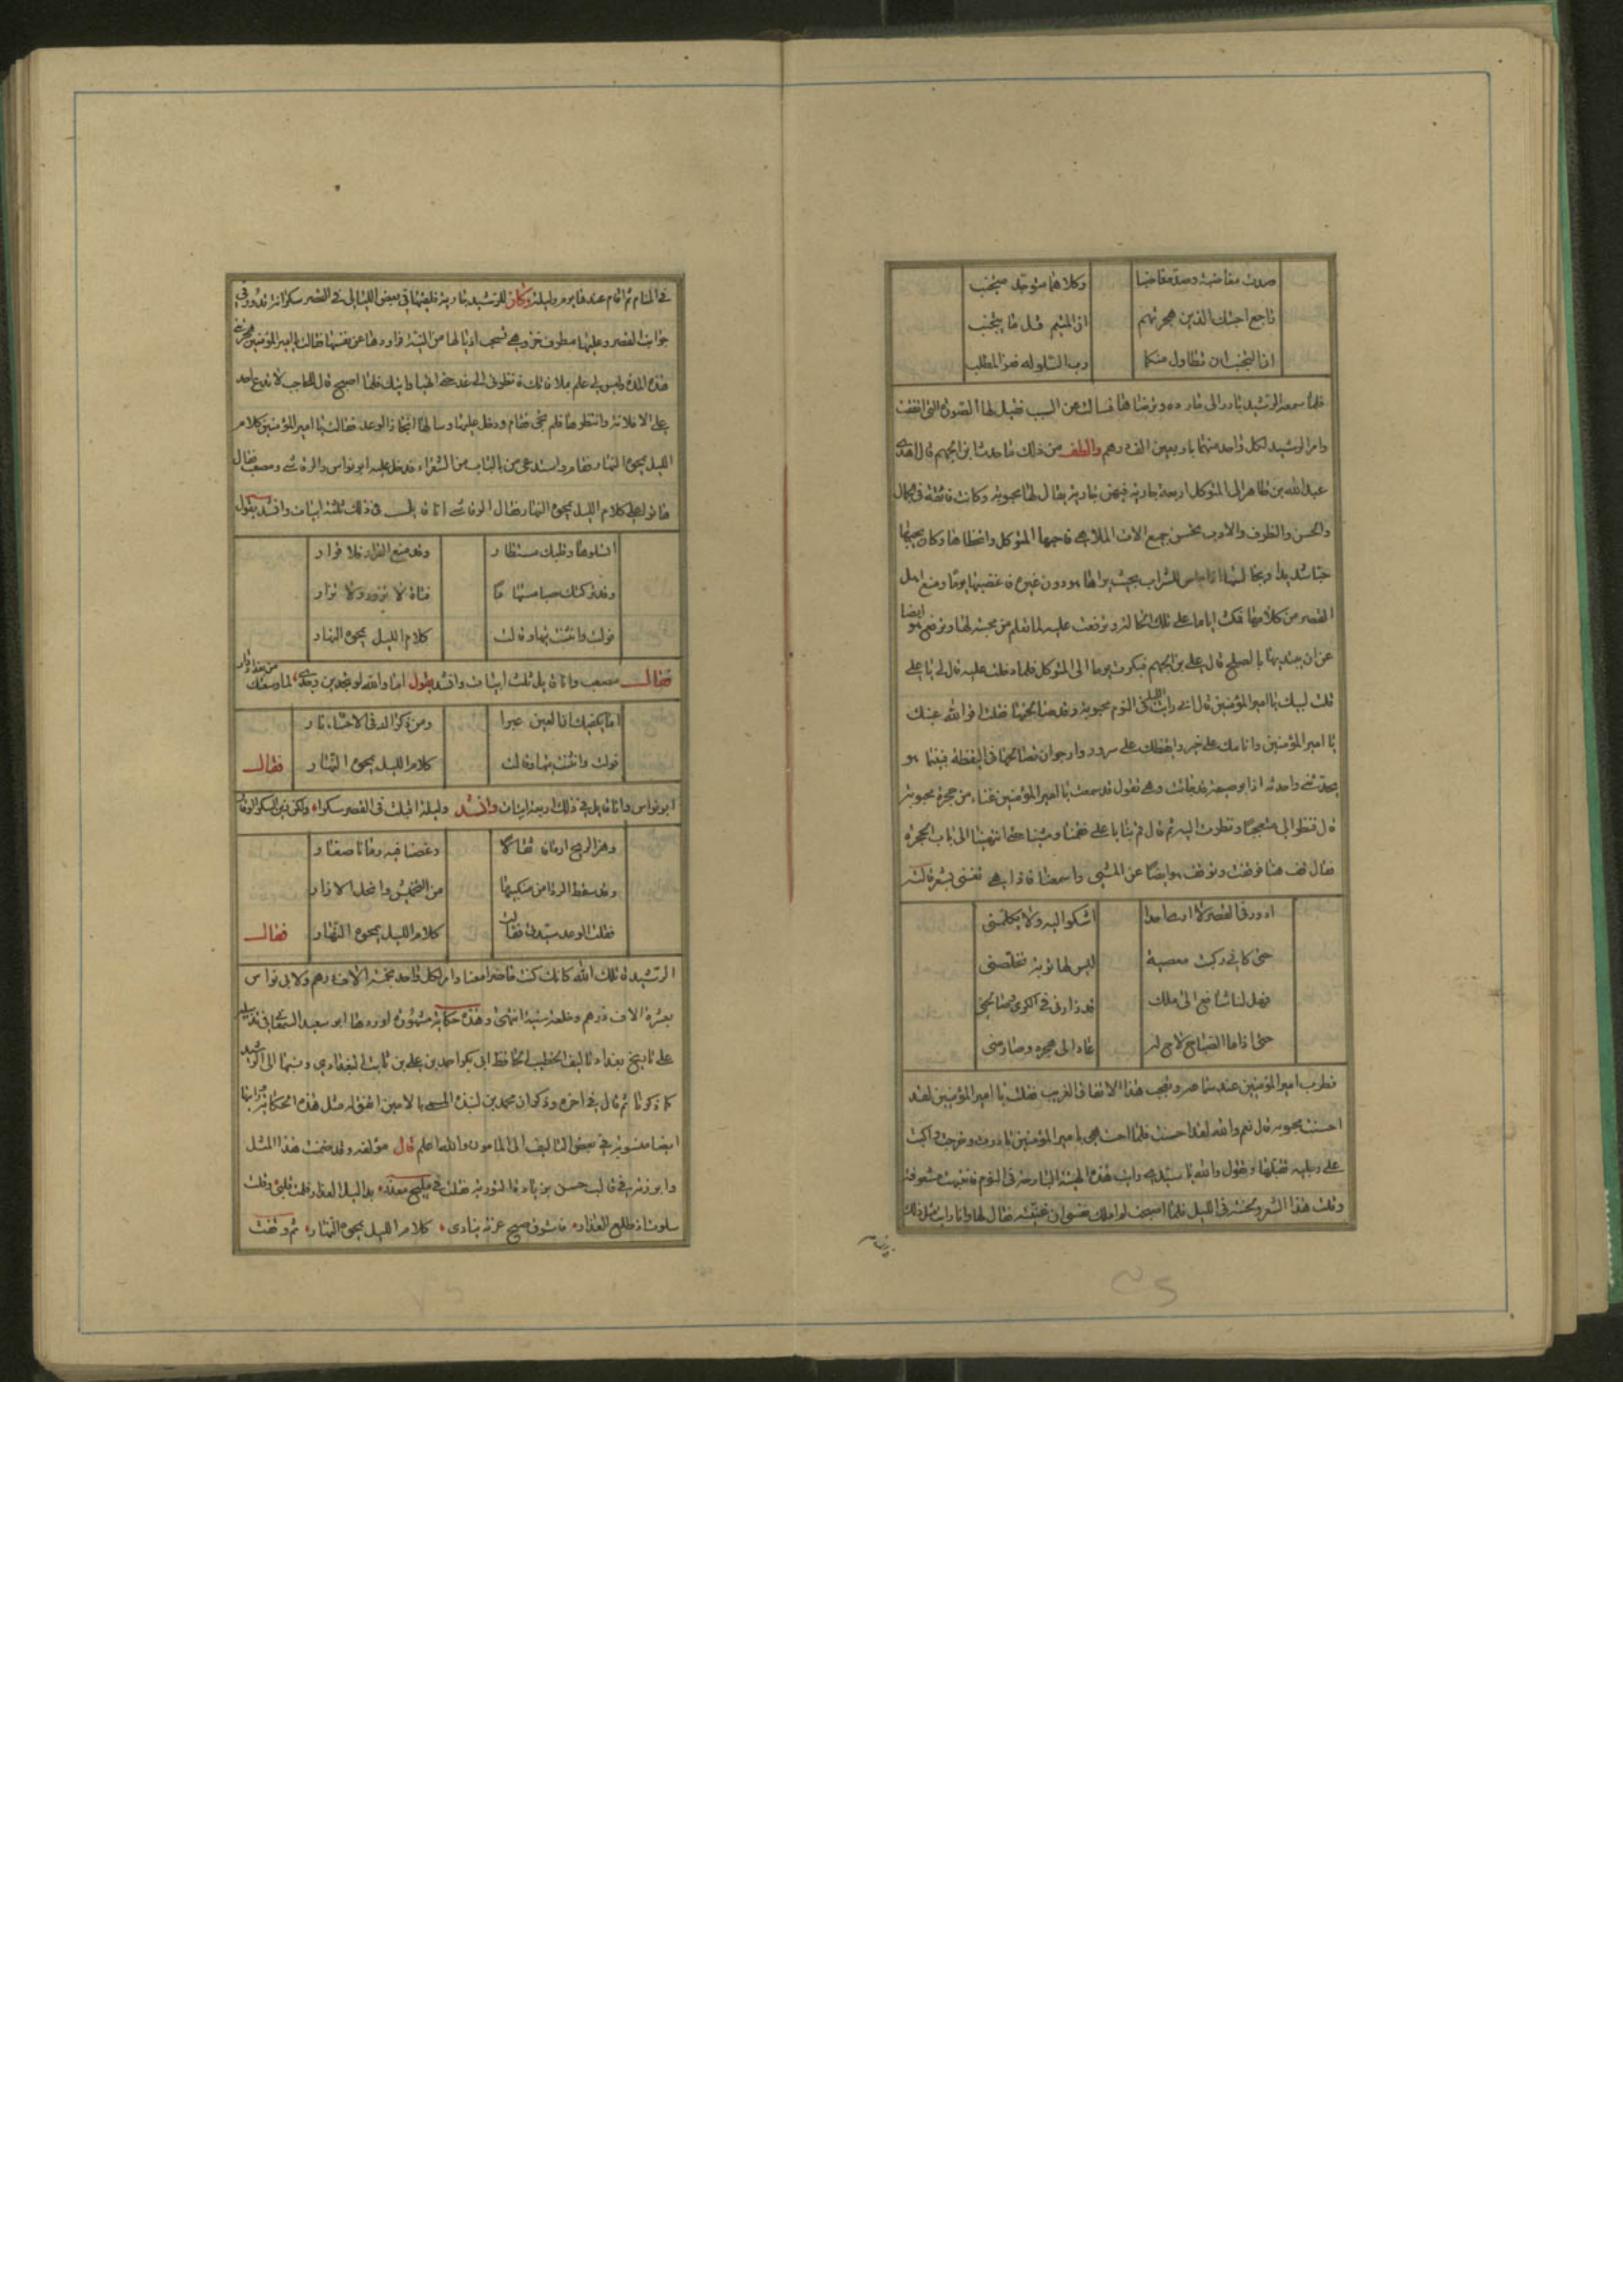 صدت مغاضبة وصد مغاضبا وكلاهما متوجد متجنب
راجع احبتك الذين هجرتهم ان المتيم قل ما يتجنب
ان التجنب ان تطاول منكما دب السلو له فعز المطلب
فلما سمعه الرشيد بادر الى مارده وترضاها فسالت عن السبب فقيل لها الصورة التي اتفقت
وامر الرشيد لكل واحد منهما باربعين الف درهم والطف من ذلك ما حدث ابن الجهم قال اهدى
عبدالله بن طاهر الى المتوكل اربعة جارية فيهن جارية يقال لها محبوبة وكانت فائقة في الجمال
والحسن والظرف والادب تحسن جميع الات الملاهي فاحبها المتوكل واحظاها وكان يحبها
حبا شديدا اذا جلس للشراب بحيث يراها هو دون غيره فغضبها يوما ومنع اهل
القصر من كلامها فمكث اياما على تلك الحالة وترفعت عليه لما تعلم من محبته لها وترفع هو ايضا
عن ان يبتديها بالصلح قال علي بن الجهم فبكرت يوما الى المتوكل فلما دخلت عليه قال لي يا علي
قلت لبيك يا امير المؤمنين قال اني رايت الليلة في النوم محبوبة وقد صالحتها فقلت اقر الله عينك
يا امير المؤمنين وانامك على خير وايقظك على سرور وارجو ان تصالحها في اليقظة فبينما هو
يحدثني واحدثه اذا بوصيفة قد جائت وهي تقول قد سمعت يا امير المؤمنين غناء من حجرة محبوبة
قال فنظر الي متعجبا ونظرت اليه ثم قال قم بنا يا علي فقمنا ومشينا حتى انتهينا الى باب الحجرة
فقال قف هنا فوقفت وتوقف هو ايضا عن المشي واسمعنا فاذا هي تغني بشعر قالته
ادور في القصر لا ارى احدا اشكوا اليه ولا يكلمني
حتى كاني ركبت معصية ليس لها توبة تخلصني
فهل لنا شافع الى ملك قد زارني في الكرى وصالحني
حتى اذا ما الصباح لاح له عاد الى هجره وصارمني
فطرب امير المؤمنين عند سماعه وتعجب هذا الاتفاق الغريب فقلت يا امير المؤمنين لقد
احسنت محبوبة قال نعم والله لقد احسنت فلما احست بمجيء امير المؤمنين بادرت وخرجت واكبت
على رجليه تقبلها وتقول والله يا سيدي رايت هذه الهيئة البارحة في النوم فانتبهت مشعوفة
وقلت هذا الشعر ولحنته في الليل فلما اصبحت لم املك نفسي ان غنيته فقال لها وانا رايت مثل ذلك
في المنام ثم اقام عندها يومه وليلته وكان للرشيد جارية فلقيها في بعض الليالي في القصر سكرانة تدور في
جوانب القصر وعليها مطرف خز وهي تسحب اذيالها من التيه فراودها عن نفسها فقالت يا امير المؤمنين هجرتني
هذه المدة وليس لي علم بملاقاتك فانظرني الى غد حتى اتهيا واتيك فلما اصبح قال للحاجب لا تدع احد
يدخل علي الا فلانة وانتظرها فلم تجئ فقام ودخل عليها وسالها انجاز الوعد فقالت يا امير المؤمنين كلام
الليل يمحوه النهار فقام واستدعى من بالباب من الشعراء فدخل عليه ابو نواس والرقاشي ومصعب فقال
هاتوا على كلام الليل يمحوه النهار فقال الرقاشي انا قايل في ذلك ثلثة ابيات وانشد يقول
اتسلوها وقلبك مستطار وقد منع القرار فلا قرار
وقد تركتك صبا مستهاما فتاة لا تزور ولا تزار
فولت وانثنت تيها وقالت كلام الليل يمحوه النهار
فقال مصعب وانا قايل ثلث ابيات وانشد يقول
اما يكفيك ان العين عبرا ومن ذكراك في الاحشاء نار
فولت وانثنت تيها وقالت كلام الليل يمحوه النهار فقال
ابو نواس وانا قايل في ذلك اربعة ابيات وانشد وليلة اقبلت في القصر سكرا ولكن زين السكر الوقار
وهز الريح اردافا ثقالا وغصنا فيه رمانا صغار
وقد سقط الردا من منكبيها من التخميش وانحل الازار
فقلت الوعد سيدتي فقالت كلام الليل يمحوه النهار فقال
الرشيد قاتلك الله كانك كنت حاضرا معنا وامر لكل واحد بخمسة الاف درهم ولابي نواس
بعشرة الاف درهم وخلعة سنية انتهى وهذه حكاية مشهورة اوردها ابو سعيد السمعاني في تذييله
على تاريخ بغداد تاليف الخطيب الحافظ ابي بكر احمد بن علي بن ثابت البغدادي ونسبها الى الرشيد
كما ذكرنا ثم قال في اخره وذكر ان محمد بن زبيدة المسمى بالامين اتفق له مثل هذه الحكاية ورايتها
ايضا منسوبة في بعض التاليف الى المامون والله اعلم قال مؤلفه وقد ضمنت هذا المثل
وابرزته في قالب حسن بزيادة التورية فقلت في مليح معذر بدا ليل العذار فلمت قلبي وقلت
سلوت اذ طلع العذار فاشرق صبح غرته ينادي كلام الليل يمحوه النهار ثم وقفت